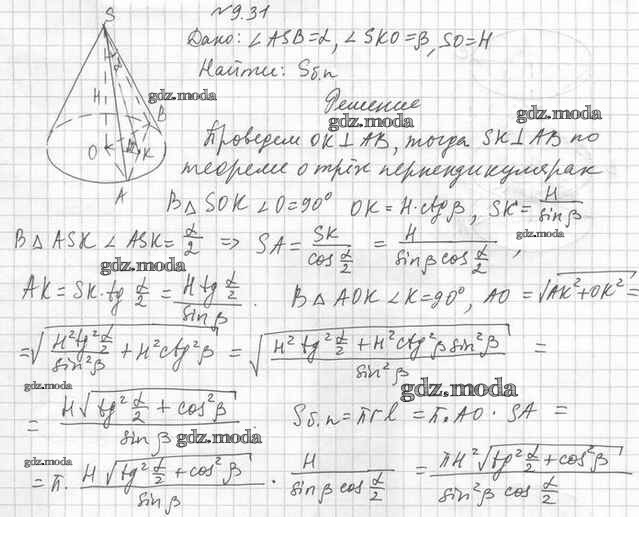 №9.31
S
Дано: ∠ASB=α, ∠SKO=β, SO=H
α
Найти: Sб.п
H
gdz.moda
Решение
B
gdz.moda
gdz.moda
O
K
Проведем OK⊥AB, тогда SK⊥AB по
A
теореме о трёх перпендикулярах
В△ SOK ∠O=90° OK=H·ctgβ, SK=H/sinβ
gdz.moda
В△ ASK ∠ASK=α/2 => SA=SK/cos α/2 = H/(sinβ cos α/2),
gdz.moda
AK=SK·tg α/2 = (H tg α/2)/sinβ. В△ AOK ∠K=90°, AO=√(AK²+OK²)=
=√((H²tg² α/2)/sin²β + H²ctg²β) = √((H²tg² α/2 + H²ctg²β sin²β)/sin²β) =
gdz.moda
gdz.moda
= (H√(tg² α/2 + cos²β))/sinβ. Sб.п=πrl=π·AO·SA =
gdz.moda
gdz.moda
=π·(H√(tg² α/2 + cos²β))/sinβ · H/(sinβ cos α/2) = (πH²√(tg² α/2 + cos²β))/(sin²β cos α/2)